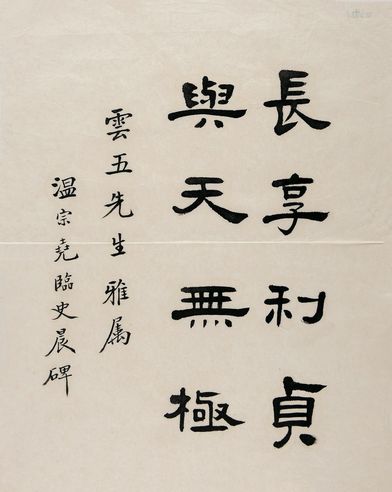 長享利貞
與天無極
雲五先生雅属
温宗堯臨史晨碑